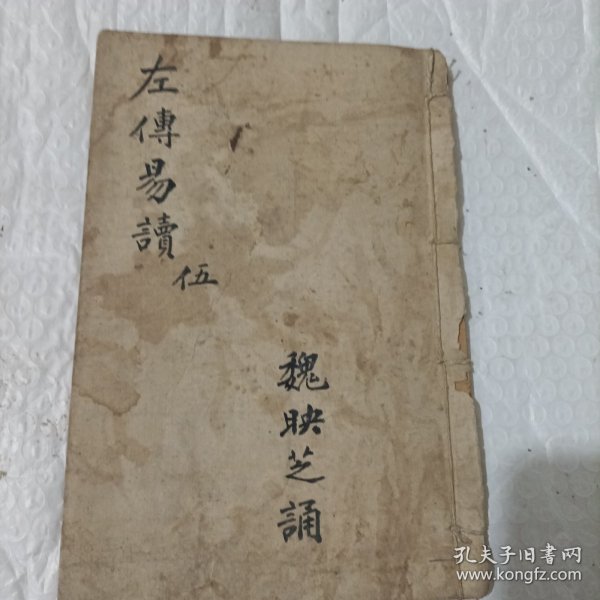 左傳易讀
伍
魏映芝誦
孔夫子旧书网
www.kongfz.com